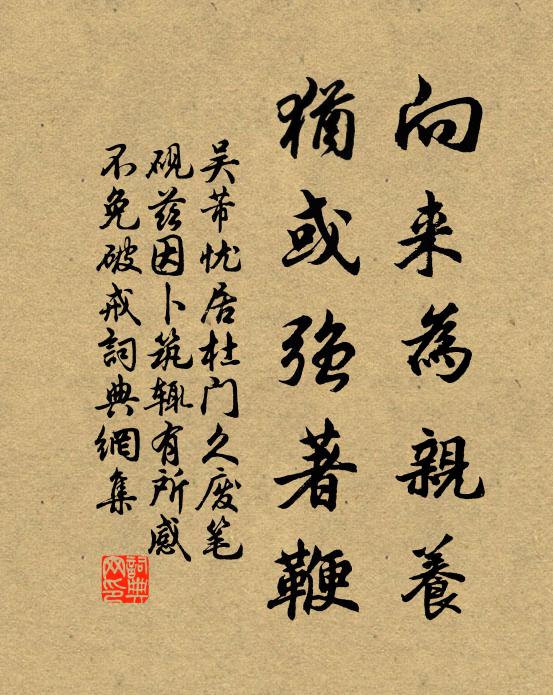 向来為親養
猶或强著鞭
吴芾忧居杜门久废笔
砚兹因卜筑辄有所感
不免破戒詞典網集
詞典
网印